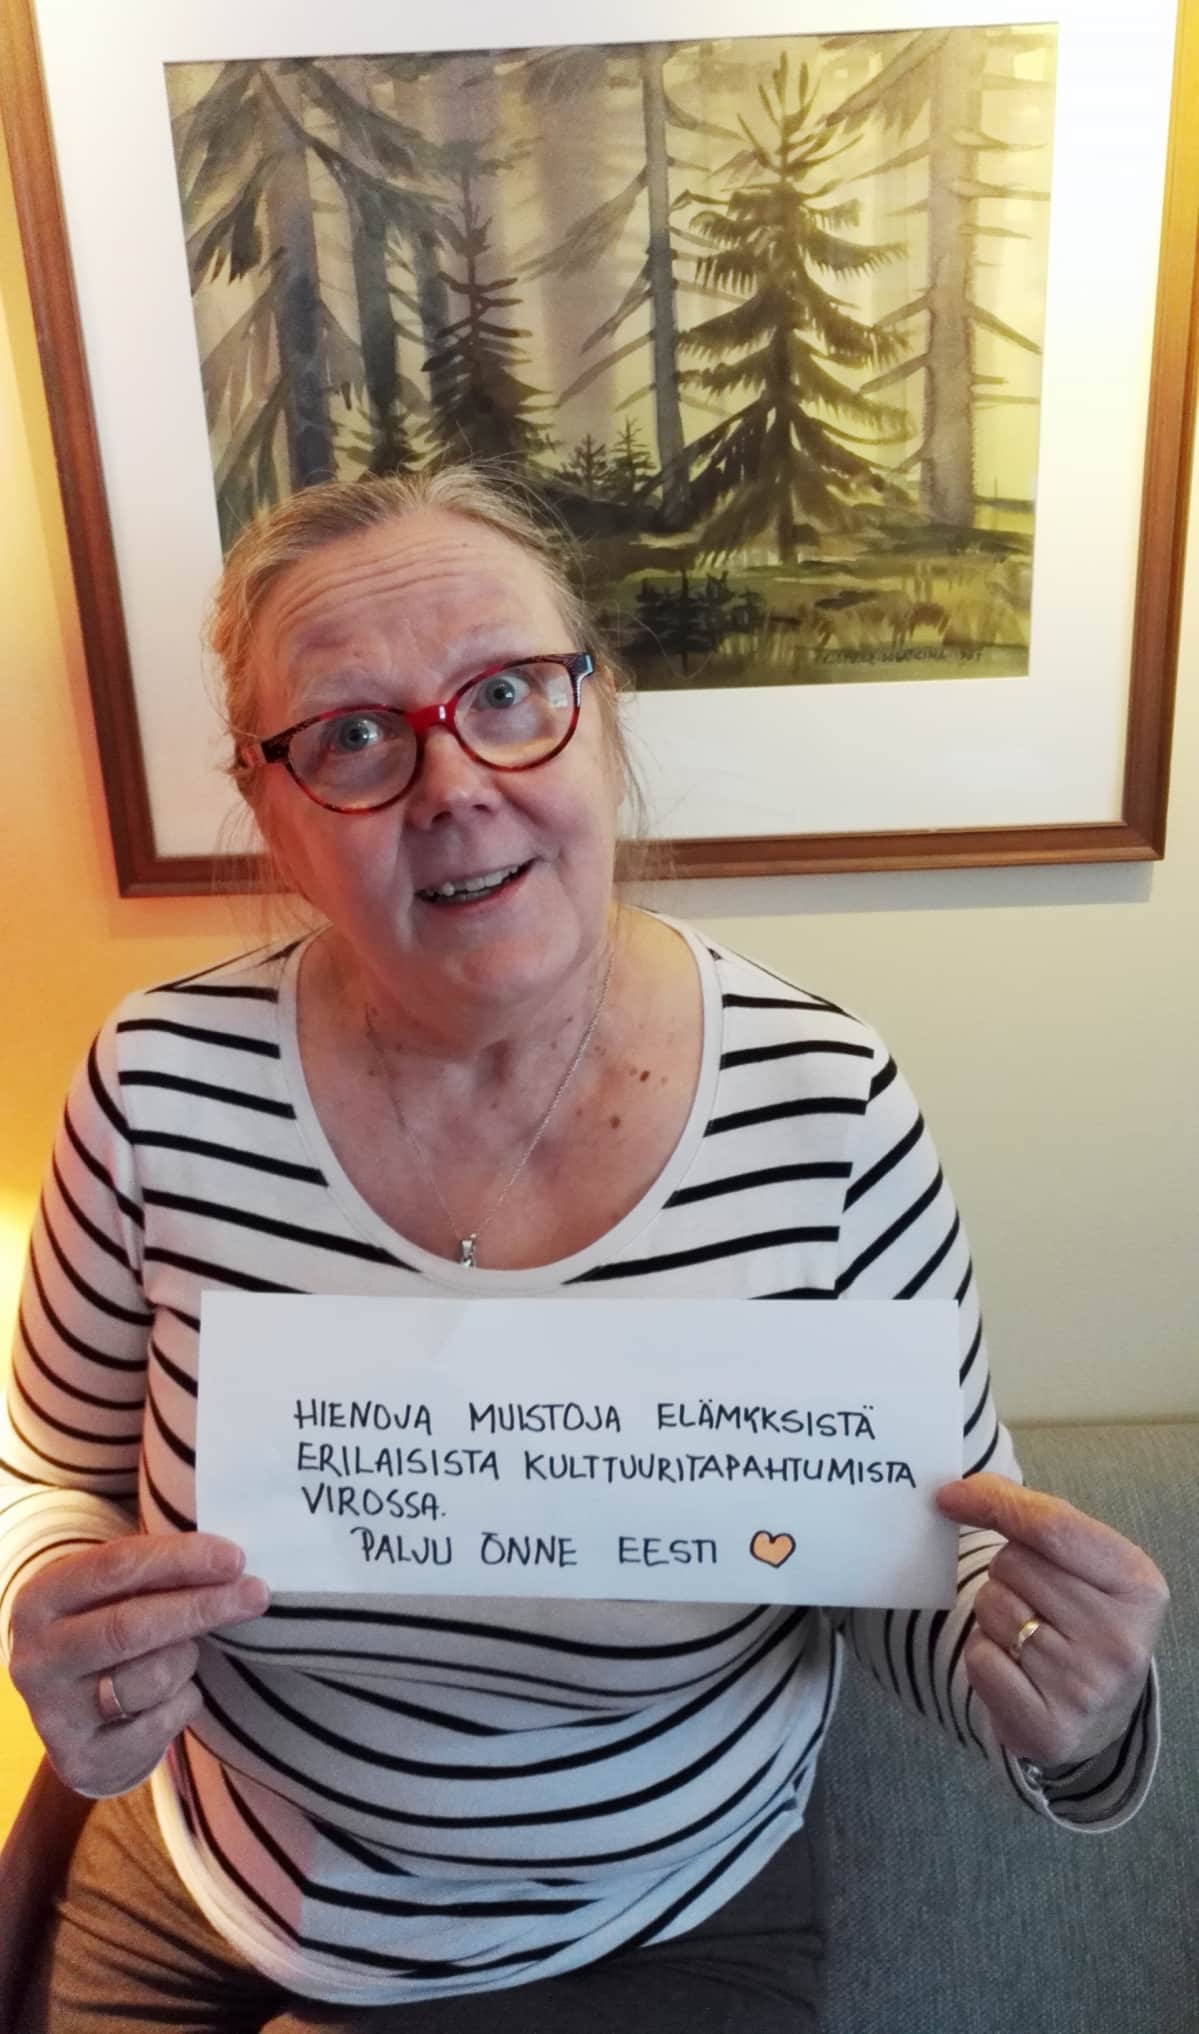 HIENOJA MUISTOJA ELÄMYKSISTÄ
ERILAISISTA KULTTUURITAPAHTUMISTA
VIROSSA.
PALJU ÕNNE EESTI